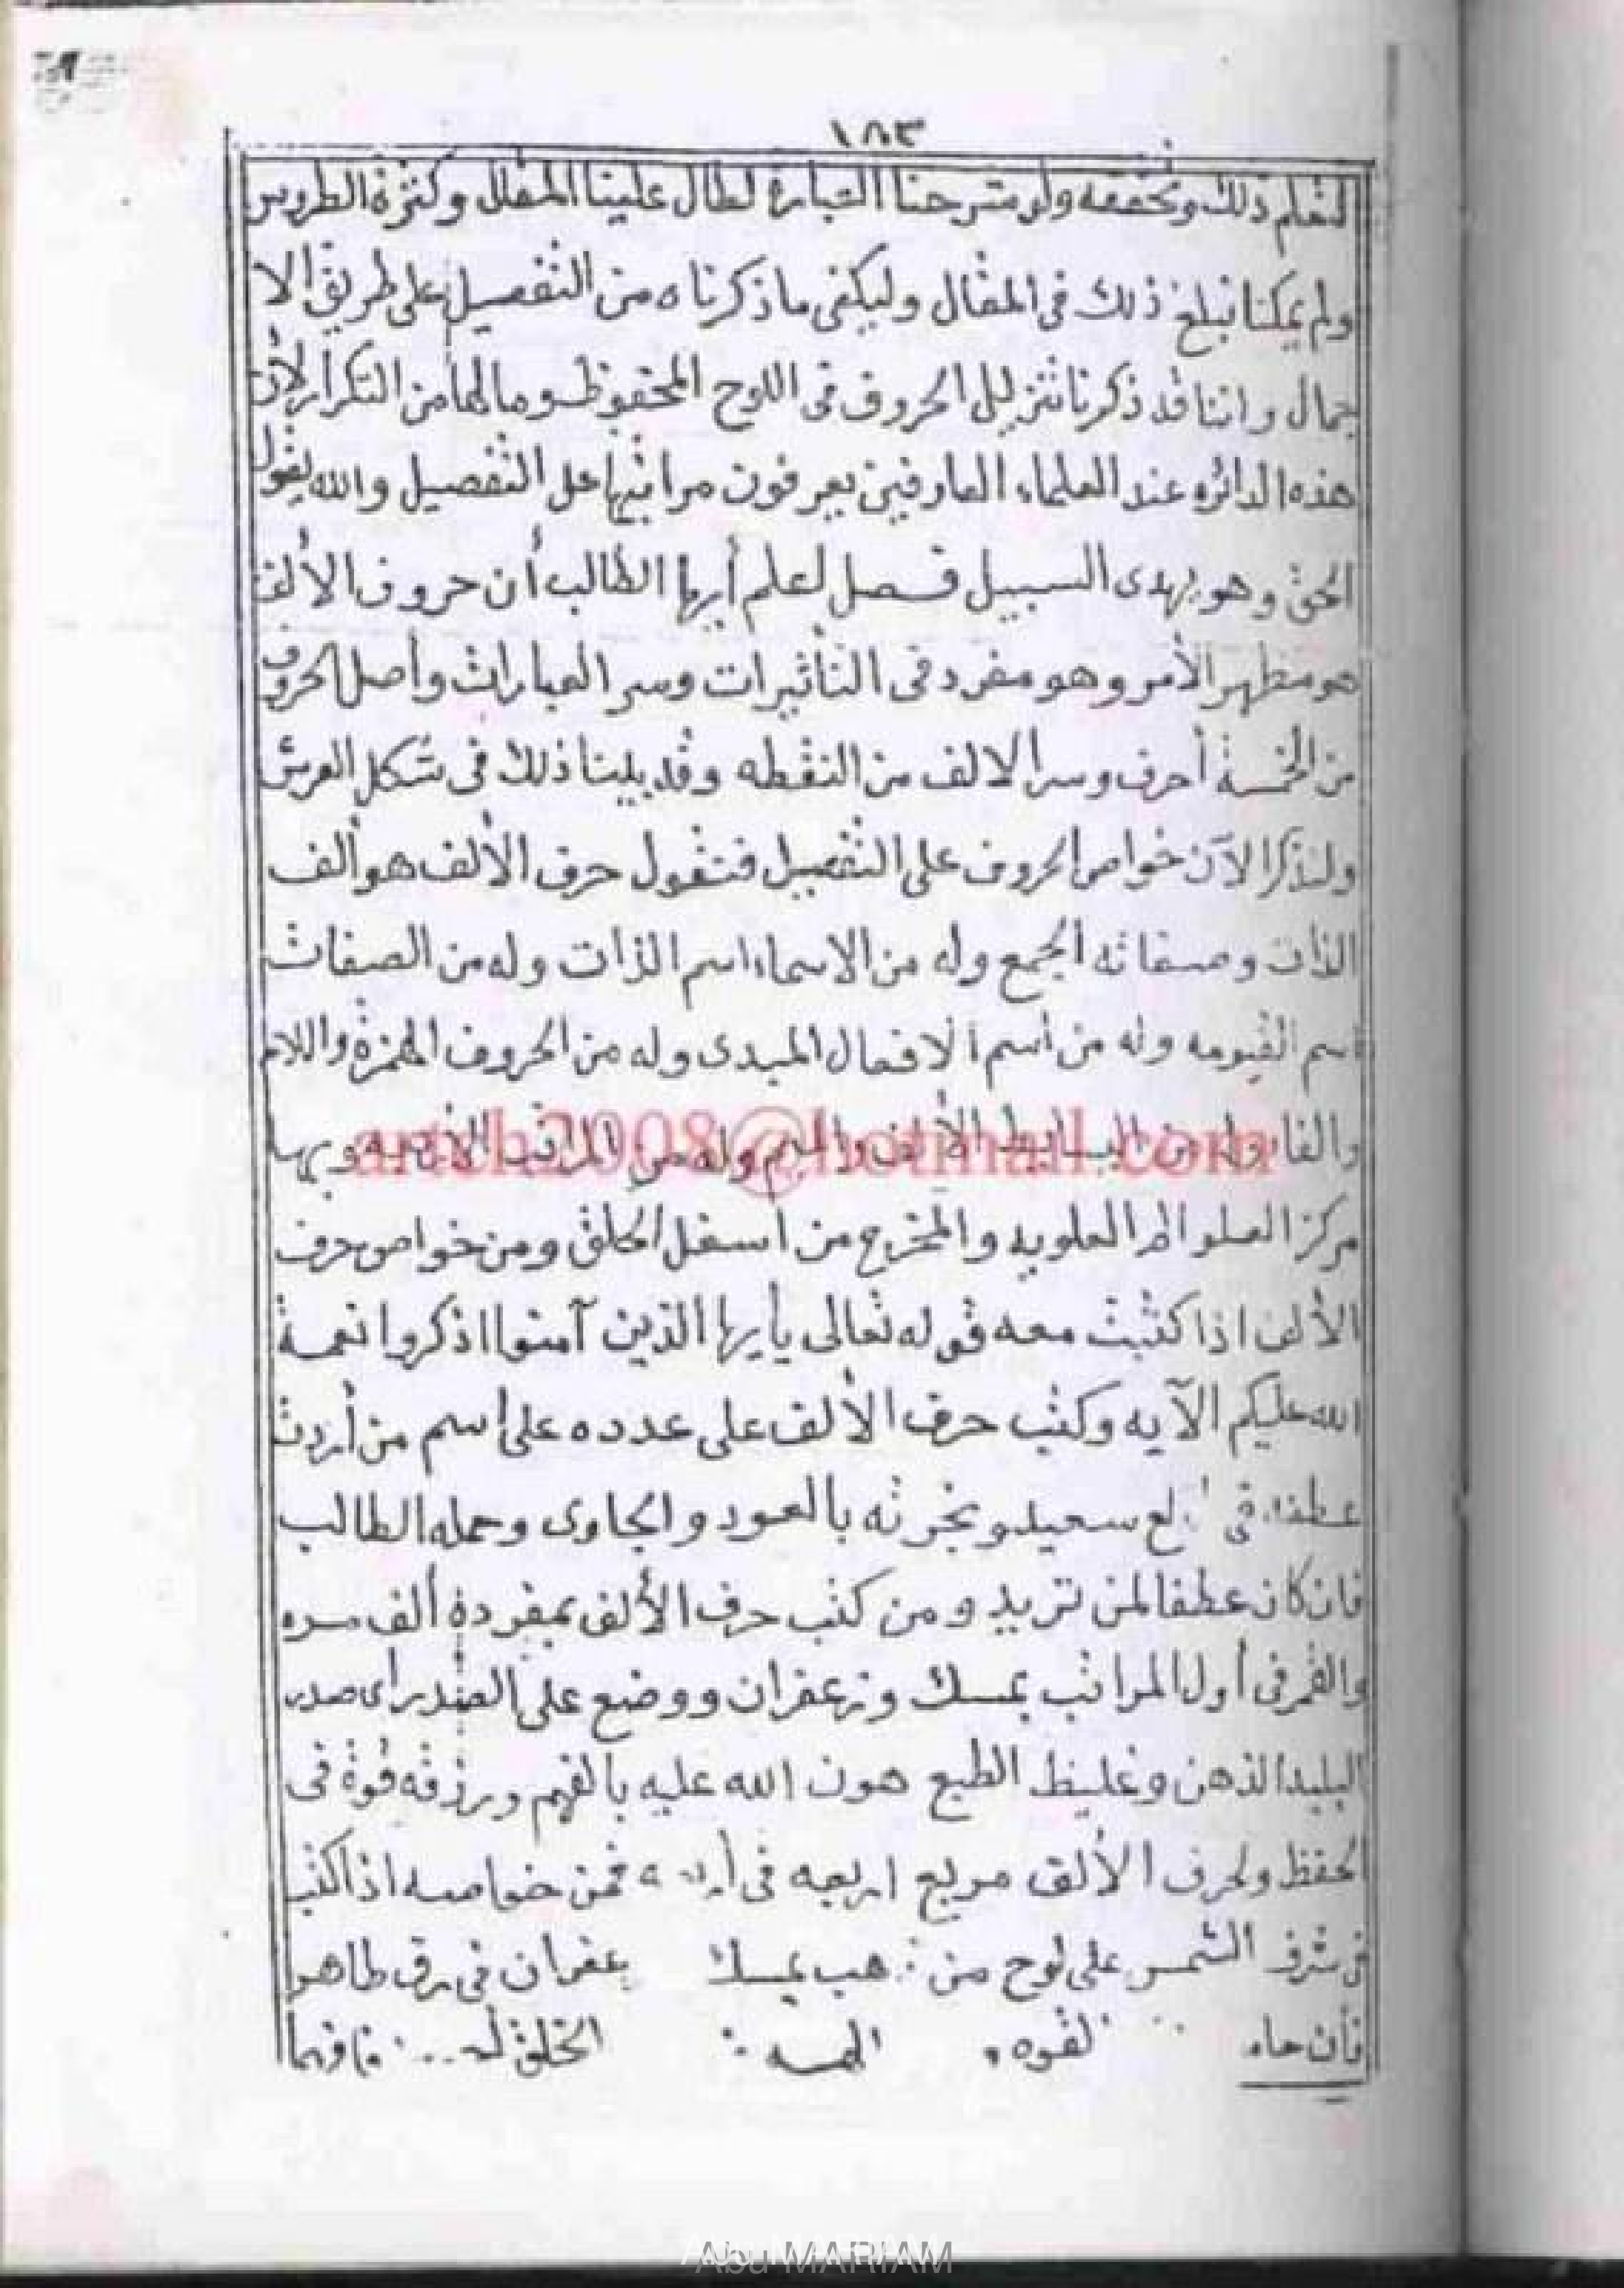 ١٨٣
لتعلم ذلك وتحققه ولو شرحنا العبارة لطال علينا المقال وكثرة الطروس
ولم يمكنا نبلغ ذلك فى المقال وليكفى ما ذكرناه من التفصيل على طريق الا
جمال واننا قد ذكرنا تنزيل الحروف فى اللوح المحفوظ وما لها من التكرار لأن
هذه الدائره عند العلماء العارفين يعرفون مراتبها على التفصيل والله يقول
الحق وهو يهدى السبيل فصل لعلم أيها الطالب أن حروف الألف
هو مظهر الأمر وهو مفرد فى التأثيرات وسر العبارات وأصل الحروف
من الخمسة أحرف وسر الالف من النقطه وقد بينا ذلك فى شكل العرش
ولنذكر الآن خواص الحروف على التفصيل فتقول حرف الألف هو ألف
الذات وصفاته الجمع وله من الاسماء اسم الذات وله من الصفات
اسم القيومه وله من اسم الافعال المبدى وله من الحروف الهمزة واللام
والفاء وله من البسايط الألف والميم وله من المراتب
artch2008@hotmail.com
مركز العلو العلويه والمخرج من أسفل الحلق ومن خواص حرف
الألف اذا كتبت معه قوله تعالى يأيها الذين آمنوا اذكروا نعمة
الله عليكم الآيه وكتب حرف الألف على عدده على اسم من أردت
عطفه فى سعيد وبخرته بالعود والجاوى وحمله الطالب
فان كان عطفا لمن تريد ومن كتب حرف الألف بمفردة ألف مره
والقمر فى أول المراتب بمسك وزعفران ووضع على الصدر اى صدر
البليد الذهن وغليظ الطبع هون الله عليه بالفهم ورزقه قوة فى
الحفظ ولحرف الألف مربع اربعه فى فمن خواصه اذا كتب
فى شرف الشمس على لوح من بمسك فى رق طاهر
فأن القوه الخلق فافهم
Abu MARIAM